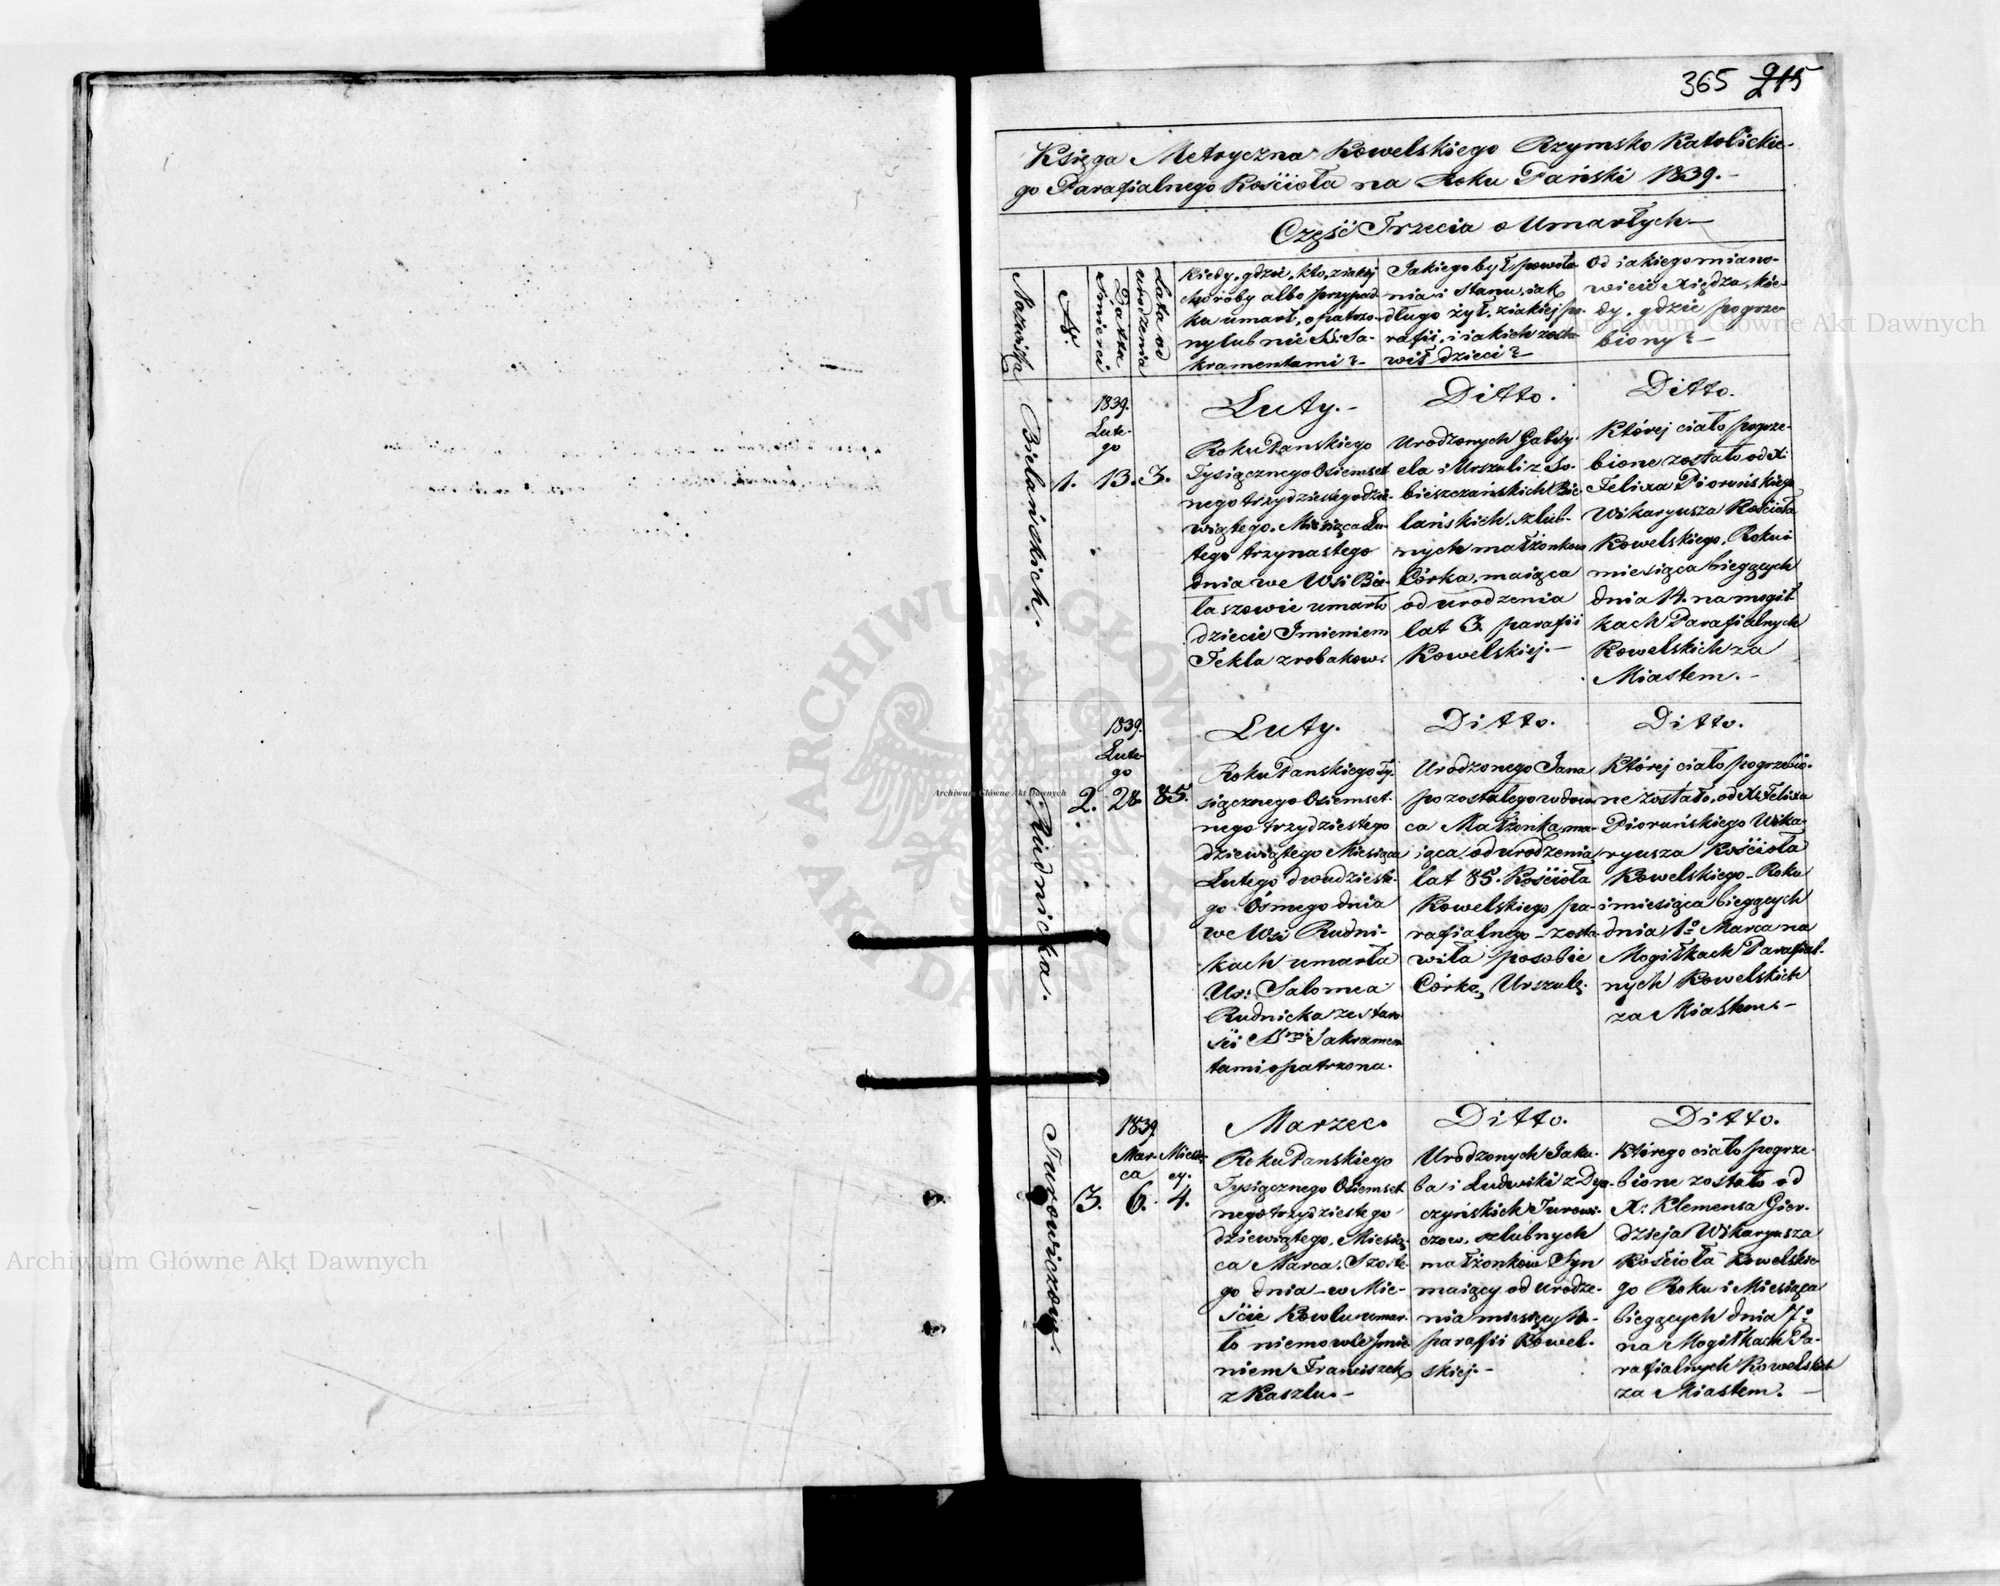 365 215
Księga Metryczna Kowelskiego Rzymsko Katolickie-
go Parafialnego Kościoła na Roku Pański 1839.-
Część Trzecia o Umarłych-
Nazwiska
N.
Datta śmierci
Lata od urodzenia
Kiedy, gdzie, kto, z iakiej
choroby albo przypad-
ku umarł, opatrzo-
ny lub nie SS: Sa-
kramentami?-
Jakiego był powoła
nia i stanu, iak
długo żył, z iakiej pa-
rafii, i iakich zosta
wił dzieci?-
Od iakiego miano-
wicie Xiędza, kie-
dy, gdzie pogrze-
biony?-
Bielańskich.
1.
1839.
Lute-
go
13.
3.
Luty.-
Roku Panskiego
Tysiącznego Osiemset
nego trzydziestego dzie-
wiątego, Miesiąca Lu-
tego trzynastego
dnia we Wsi Bie-
laszowie umarło
dziecie Imieniem
Tekla z robakow.
Ditto.
Urodzonych Gabry-
ela i Urszuli z So-
bieszczańskich Bie
lańskich, szlub-
nych małżonkow
Córka, maiąca
od urodzenia
lat 3. parafii
Kowelskiej.-
Ditto.
Której ciało pogrze-
bione zostało od X:
Felixa Pioruńskiego
Wikaryusza Kościoła
Kowelskiego, Roku i
miesiąca bieżących
dnia 14. na mogił
kach Parafialnych
Kowelskich za
Miastem.-
Rudnicka.
2.
1839.
Lute-
go
28
85.
Luty.
Roku Panskiego Ty-
siącznego Osiemset-
nego trzydziestego
dziewiątego Miesiąca
Lutego dwudzieste-
go Ósmego dnia
we Wsi Rudni-
kach umarła
Ur: Salomea
Rudnicka ze staro
ści SSmi Sakramen
tami opatrzona.
Ditto.
Urodzonego Jana
pozostałego wdow
ca Małżonka, ma-
iąca od urodzenia
lat 85. Kościoła
Kowelskiego pa-
rafialnego - zosta-
wiła po sobie
Córkę, Urszulę.
Ditto.
Której ciało pogrzebio-
ne zostało, od X: Felixa
Pioruńskiego Wika-
ryusza Kościoła
Kowelskiego - Roku
i miesiąca bieżących
dnia 1o Marca na
Mogiłkach Parafial-
nych Kowelskich
za Miastem.-
Turowiczow.
3.
1839.
Mar-
ca
6.
Miesię-
cy.
4.
Marzec.
Roku Panskiego
Tysiącznego Osiemset
nego trzydziestego
dziewiątego, Miesią-
ca Marca, Szoste-
go dnia - w Mie-
ście Kowlu umar-
ło niemowle Imie
niem Franciszek
z Kaszlu.-
Ditto.
Urodzonych Jaku-
ba i Ludwiki z
czyńskich Turowi-
czow, szlubnych
małżonkow Syn
maiący od urodze-
nia miesięcy 4.-
parafii Kowel-
skiej.-
Ditto.
Którego ciało pogrze-
bione zostało od
X: Klemensa Gier-
dzieja Wikaryusza
Kościoła Kowelskie-
go Roku i Miesiąca
bieżących dnia 7o
na Mogiłkach Pa-
rafialnych Kowelskich
za Miastem.-
Archiwum Główne Akt Dawnych
Archiwum Główne Akt Dawnych
Archiwum Główne Akt Dawnych
ARCHIWUM GŁÓWNE AKT DAWNYCH